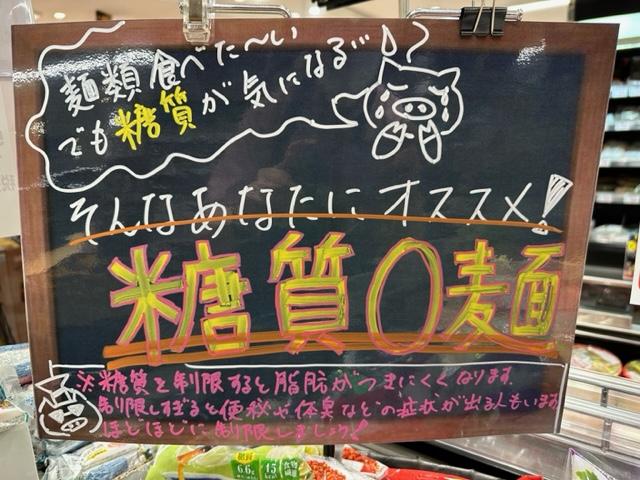 麺類食べた〜い
でも糖質が気になる㇞
そんなあなたにオススメ!
糖質0麺
※糖質を制限すると脂肪がつきにくくなります。
制限しすぎると便秘や体臭などの症状が出る人もいます
ほどほどに制限しましょう!
糖質
6.6g
15
kcal
食物
繊維